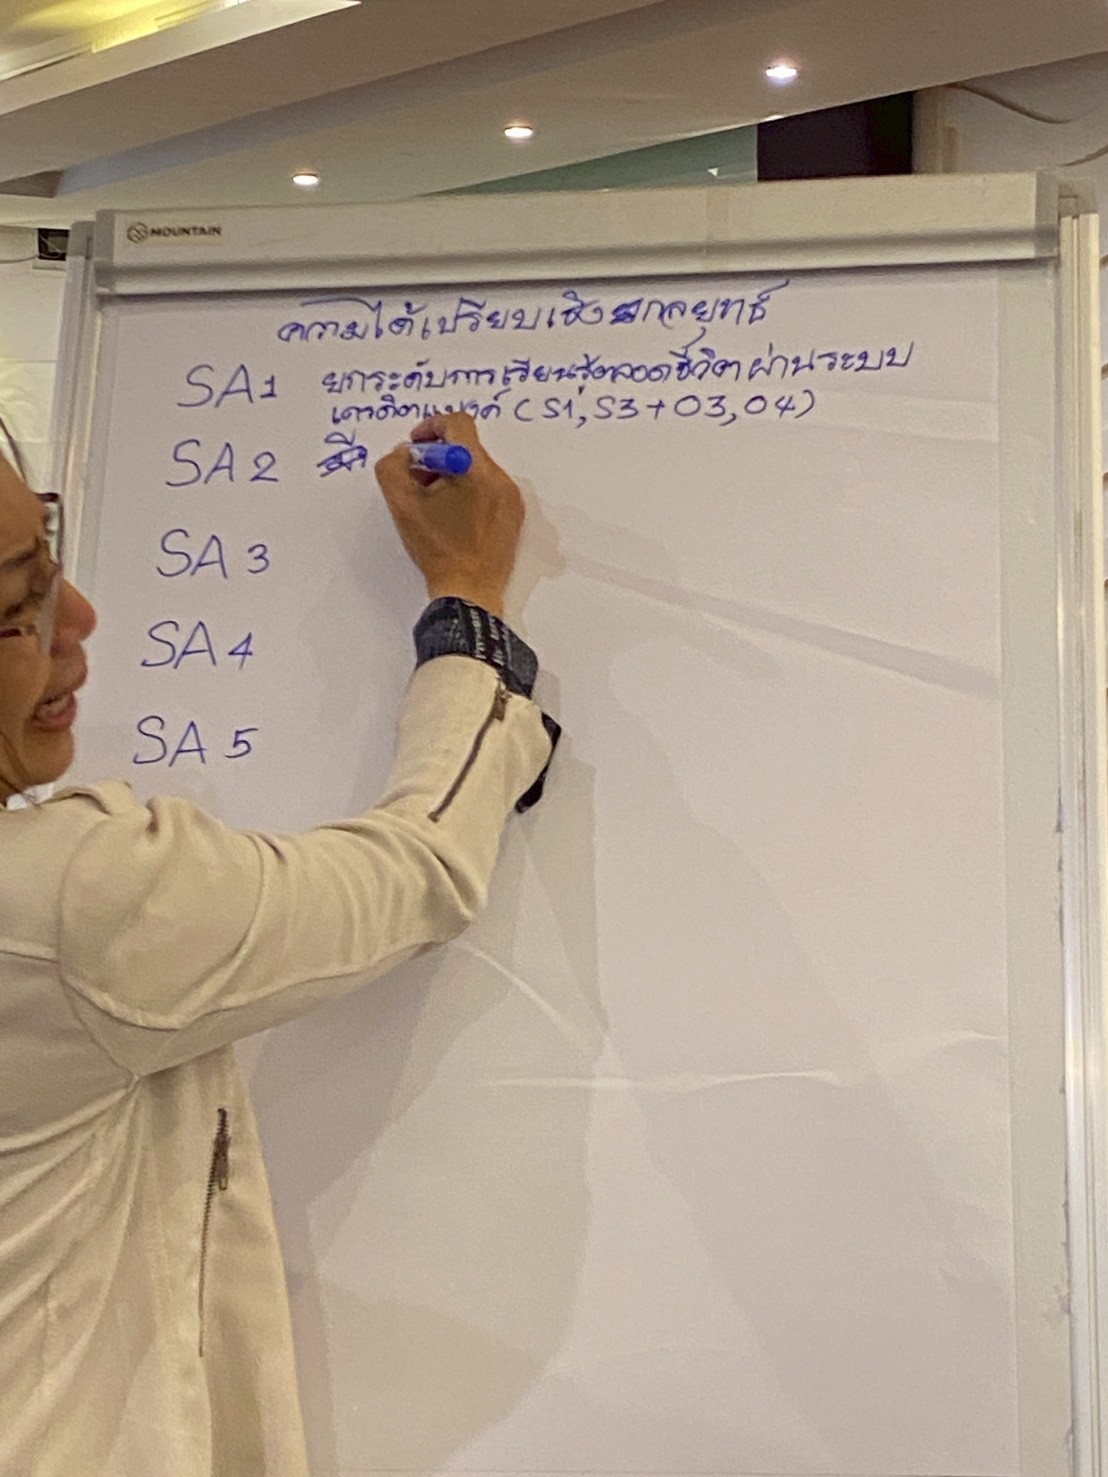 MOUNTAIN
ความได้เปรียบเชิงกลยุทธ์
SA1 ยกระดับการเรียนรู้ตลอดชีวิตผ่านระบบ
เครดิตแบงค์ (S1, S3 + O3, O4)
SA 2
SA 3
SA 4
SA 5